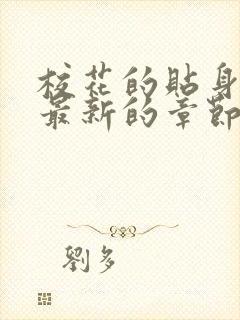 校花的貼身
最新的章節
劉多